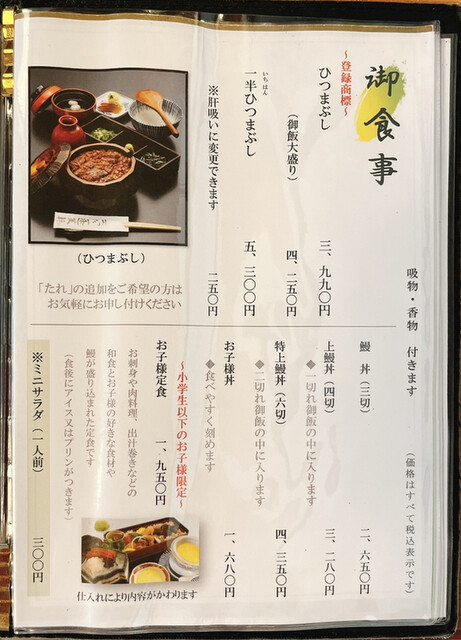 御食事
吸物・香物 付きます
(価格はすべて税込表示です)
〜登録商標〜
ひつまぶし 三、九九〇円
(御飯大盛り) 四、二五〇円
いちはん
一半ひつまぶし 五、三〇〇円
※肝吸いに変更できます 二五〇円
(ひつまぶし)
「たれ」の追加をご希望の方は
お気軽にお申し付けください
鰻 丼(三切) 二、六五〇円
上鰻丼(四切) 三、二八〇円
◆一切れ御飯の中に入ります
特上鰻丼(六切) 四、三五〇円
◆二切れ御飯の中に入ります
お子様丼 一、六八〇円
◆食べやすく刻めます
〜小学生以下のお子様限定〜
お子様定食 一、九五〇円
お刺身や肉料理、出汁巻きなどの
和食とお子様の好きな食材や
鰻が盛り込まれた定食です
(食後にアイス又はプリンがつきます)
仕入れにより内容がかわります
※ミニサラダ(一人前) 三〇〇円